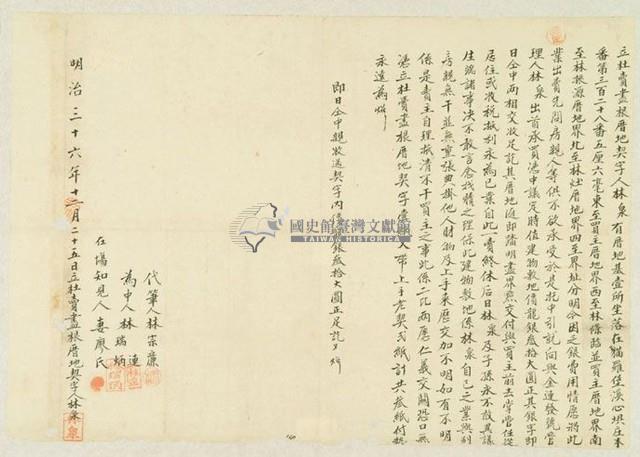 立杜賣盡根厝地契字人林泉有厝地基壹所坐落在貓羅堡溪心垻庄本
番第三百二十八番五厘六毫東至買主厝地界西至林條踏並買主厝地界南
至林振源厝地界北至林灶厝地界四至界址分明今因乏銀費用情愿將此
業出賣先問房親人等俱不欲承受外是托中引就向與金連發號管
理人林泉出首承買憑中議定時值建物敷地價龍銀叁拾大圓正其銀字即
日仝中兩相交收足訖其厝地隨即踏明盡界照交付與買主前去掌管任從
居住或收稅抵利永為己業自此一賣終休後日林泉及子孫永不敢異議
生端諸事決不敢言愈找贖之理保此建物敷地係林泉自己之業與別
房親無干並無重張典掛他人財物及上手來歷交加不明如有不明
係是賣主自理抵清不干買主之事此係二比兩愿仁義交關恐口無
憑立杜賣盡根厝地契字壹紙 帶上手老契弍紙計共叁紙付執
永遠為炤
即日仝中親收過契字內 銀叁拾大圓正足訖炤
國史館臺灣文獻館
TAIWAN HISTORICA
代筆人林宗廉
為中人林瑞連
炳
在場知見人妻廖氏
明治三十六年十二月二十五日立杜賣盡根厝地契字人林泉